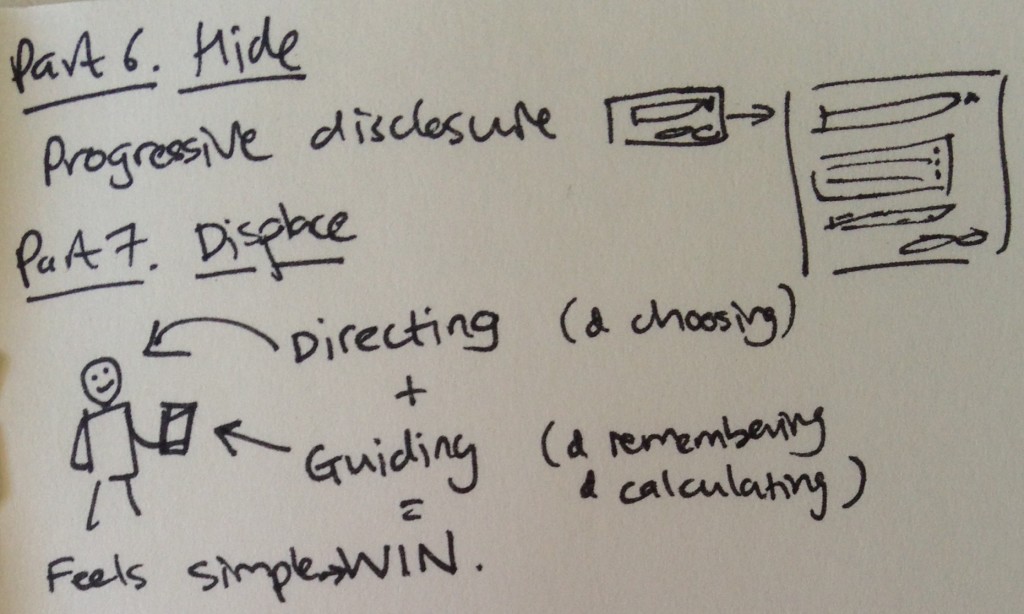 Part 6. Hide
Progressive disclosure
Part 7. Displace
Directing (& choosing)
+
Guiding (& remembering
& calculating)
=
Feels simple→WIN.